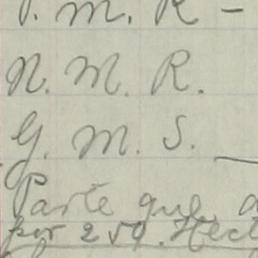 . M. R -
N. M. R.
G. M. S. -
Parte que
por 259. Hect